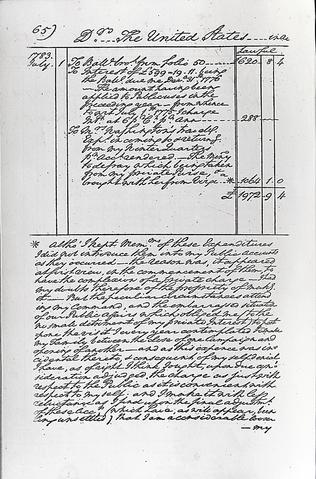 65) Drs. The United States
Lawful
1783.
July. 1 To Ball. bro. from folio 50 £620 8 4
To Interest of £599..19..11 being
the Ball. due me Decr. 31st 1776
— The amount having been
applied to Public uses in the
preceeding year — from whence
to 1st July 1783 I charge
Intt. at 6 pr. Ct. pr. ann. 288
To Mrs. Washington's travellg.
Exps. in coming to & returng.
from my Winter Quarters
pr. accts. rendered — The Money
to defray which being taken
from my private Purse, &
brought with her from Virga. * 1064 1 0
£ 1972 9 4
* Altho' I kept Memms. of these Expenditures
I did not introduce them into my Public Accounts
as they occurred — the reason was, it appeared
at first view, in the commencement of them, to
have the complexion of a private charge — I had
my doubts therefore of the propriety of making
it — But the peculiar circumstances attending
my command, and the embarrassed situation
of our Public Affairs which obliged me (to the
no small detriment of my private Interest) to post
pone the visit I every year contemplated to make
my Family between the close of one Campaign and
opening of another — and as this expence was in
cidental thereto, & consequent of my self denial
I have, as of right I think I ought, upon due con
sideration adjudged the charge as just with
respect to the Public as it is convenient with
respect to myself; and I make it with less
reluctance as I find upon the final adjustmt.
of these accts. (which have, as will appear, been
long unsettled) that I am a considerable looser
— my